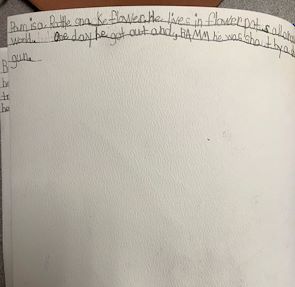 Bam is a Rattle sna Ke flower. He lives in flower pot
world. One day he got out and, BAMM he was shot by a
gun.
B
he
tr
he